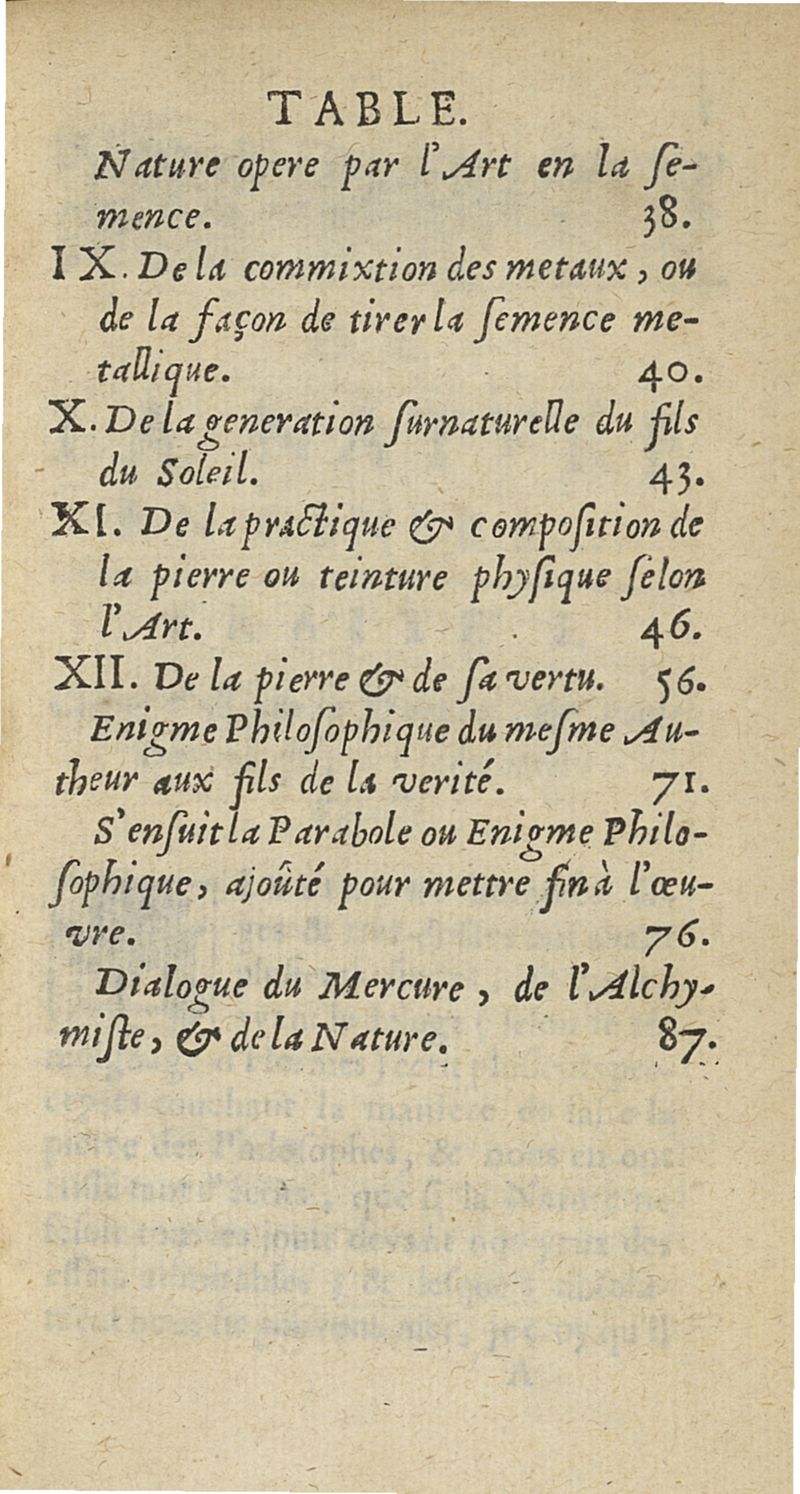 TABLE.
Nature opere par l'Art en la ſe-
mence. 38.
IX. De la commixtion des metaux, ou
de la façon de tirer la ſemence me-
tallique. 40.
X. De la generation ſurnaturelle du fils
du Soleil. 43.
XI. De la practique & compoſition de
la pierre ou teinture phyſique ſelon
l'Art. 46.
XII. De la pierre & de ſa vertu. 56.
Enigme Philoſophique du meſme Au-
theur aux fils de la verité. 71.
S'enſuit la Parabole ou Enigme Philo-
ſophique, ajoûté pour mettre fin à l'œu-
vre. 76.
Dialogue du Mercure, de l'Alchy-
miſte, & de la Nature. 87.